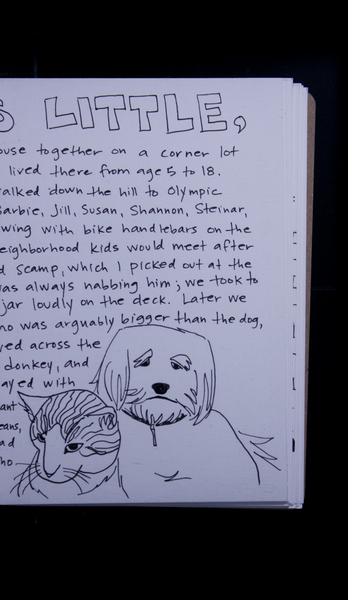 S LITTLE,
ouse together on a corner lot
lived there from age 5 to 18.
alked down the hill to Olympic
Barbie, Jill, Susan, Shannon, Steinar,
wing with bike handlebars on the
eighborhood kids would meet after
d Scamp, which I picked out at the
as always nabbing him; we took to
jar loudly on the deck. Later we
ho was arguably bigger than the dog,
ved across the
donkey, and
ayed with
ant
eans,
ad
ho